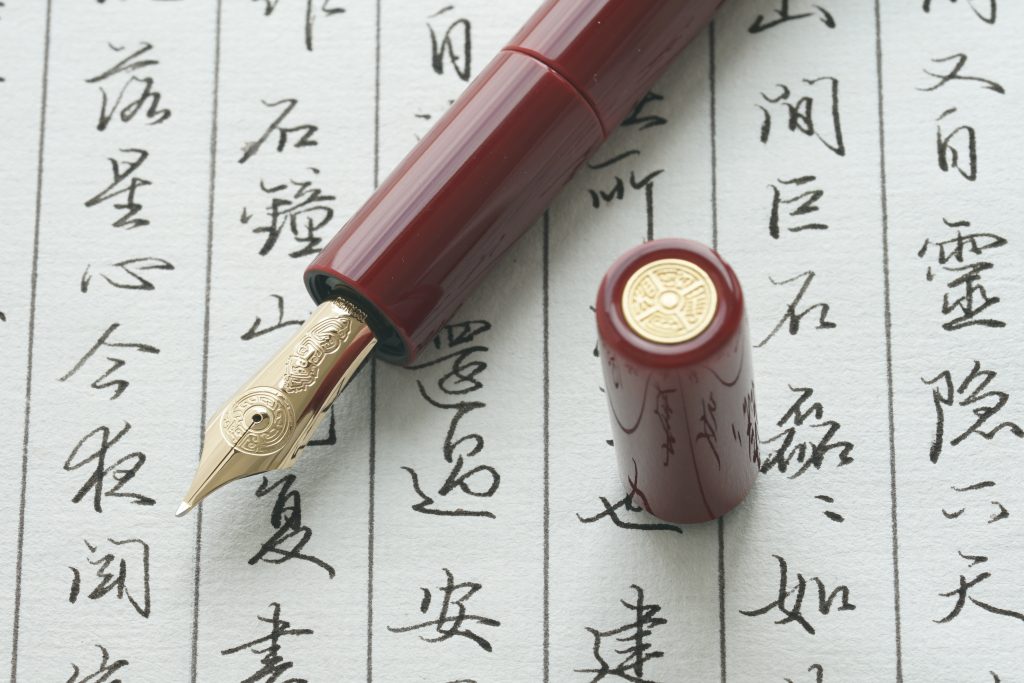 又自靈隱 天
山間巨石磊〻如
所 也建
自 還過安
石鐘山 复書
落星心今夜聞